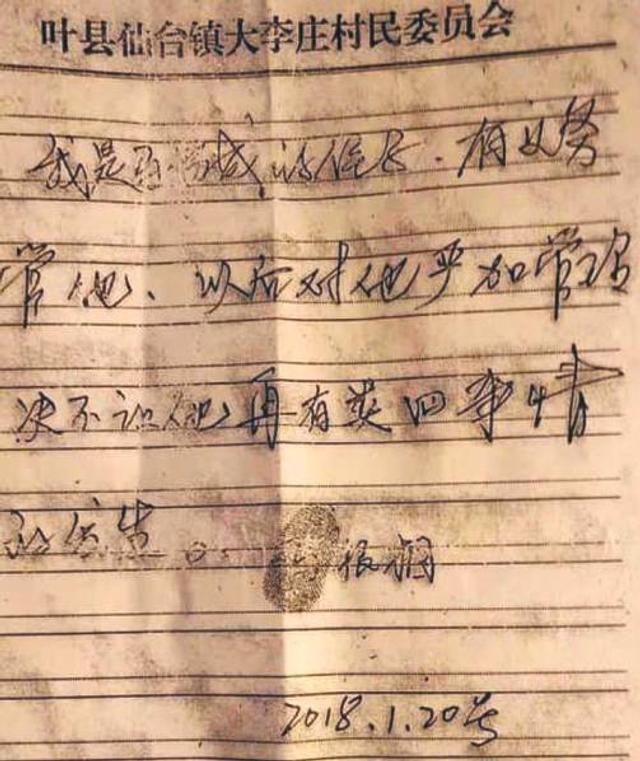 叶县仙台镇大李庄村民委员会
我是 的侄长、有义务
管他、以后对他严加管理
决不让他再有类四事情
的发生。
根炯
2018.1.20号